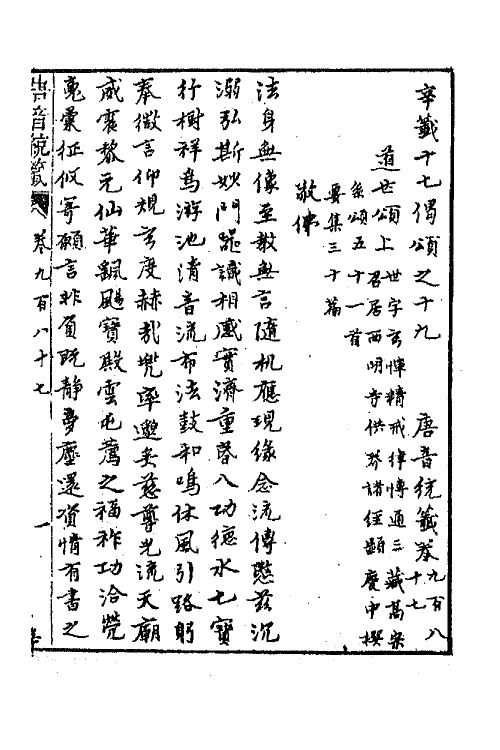 辛籤十七偈頌之十九　唐音統籤卷九百八十七
道世頌上　世字玄惲精戒律博通三藏高宗召居西明寺供養諸經顯慶中撰
系頌五十一首
要集三十篇
敬佛
法身無像至教無言隨机應現緣念流傳愍茲沉
溺弘斯妙門跪誠相感實濟重昏八功德水七寶
行樹祥鳥游池清音流布法鼓和鳴休風引路躬
奉微言仰規玄度赫哉兜率邈矣慈尊光流天廟
威震黎元仙華飄颺寶殿雲屯薦之福祚功洽煢
魂稟征攸寄願言非負既靜夢塵還資情有書之
唐音統籤　卷九百八十七　一